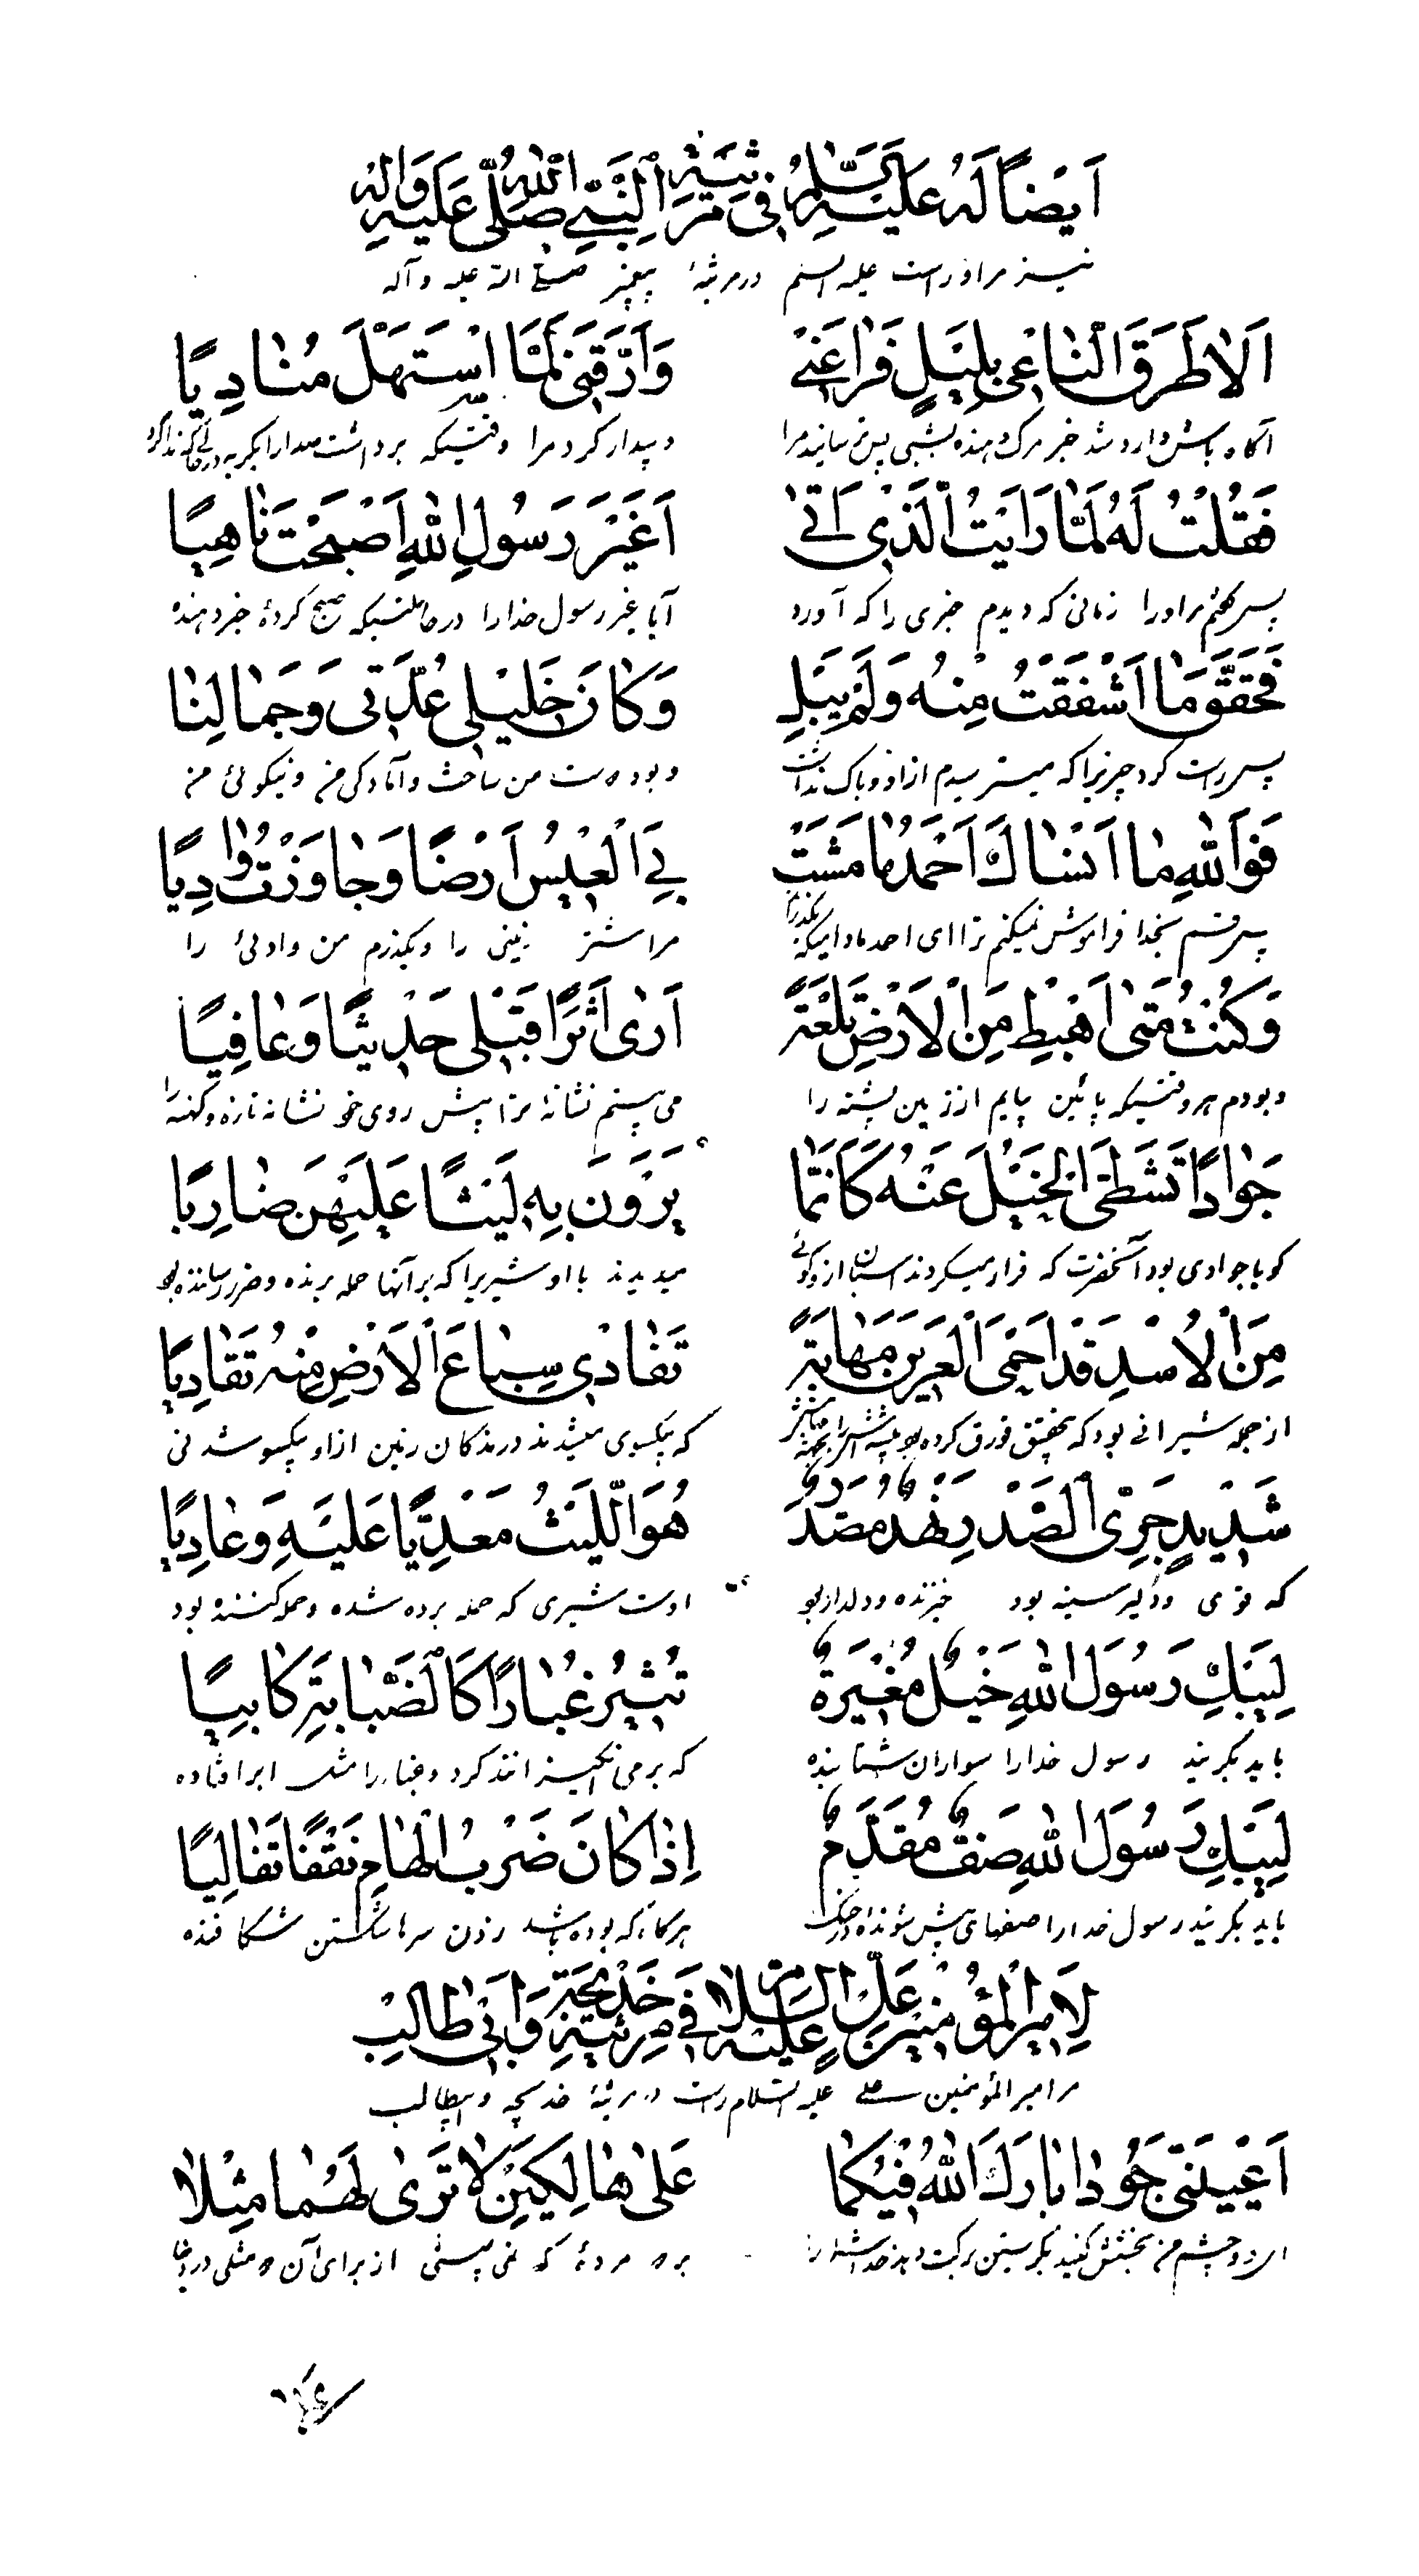 اَيْضاً لَهُ عَلَيْهِ السَّلٰمُ فِى مَرْثِيَةِ النَّبِىِّ صَلَّى اللّٰهُ عَلَيْهِ وَاٰلِهِ
نیز مر او راست علیه السلم در مرثیهٔ پیغمبر صلی الله علیه و آله
اَلٰا طَرَقَ النّٰاعِى بِلَيْلٍ فَرٰاعَنِى وَاَرَّقَنِى لَمَّا اسْتَهَلَّ مُنٰادِيًا
آگاه باش وارد شد خبر مرگ دهنده بشبی پس ترسانید مرا و بیدار کرد مرا وقتیکه برداشت صدا را بگریه در حالتی که ندا کرد
فَقُلْتُ لَهُ لَمّٰا رَاَيْتُ الَّذِى اَتٰى اَغَيْرَ رَسُولِ اللّٰهِ اَصْبَحْتَ نٰاهِيًا
پس گفتم مر او را زمانی که دیدم خبری را که آورد آیا غیر رسول خدا را در حالتیکه صبح کردهٔ خبر دهنده
فَحَقَّقَ مٰا اَشْفَقْتُ مِنْهُ وَلَمْ يُبَلِ وَكٰانَ خَلِيْلِى عُدَّتِى وَجَمٰالِنٰا
پس راست کرد چیزیرا که میترسیدم از او و باک نداشت و بود دوست من ساخت و آمادگی من و نیکوئی من
فَوَاللّٰهِ مٰا اَنْسٰاكَ اَحْمَدُ مٰا مَشَتْ بِىَ الْعِيْسُ اَرْضًا وَجٰاوَزْتُ وٰادِيًا
پس قسم بخدا فراموش نمیکنم ترا ای احمد مادامیکه بگذرد مرا شتر زمینی را و بگذرم من وادئی را
وَكُنْتُ مَتٰى اَهْبِطْ مِنَ الْاَرْضِ تَلْعَةً اَرٰى اَثَرًا قَبْلِى حَدِيْثًا وَعٰافِيًا
و بودم هر وقتیکه پائین بیایم از زمین پشته را می بینم نشانهٔ ترا پیش روی خود نشانه تازه و کهنه را
جَوٰادًا تَشَظَّى الْخَيْلُ عَنْهُ كَاَنَّمٰا يَرَوْنَ بِهِ لَيْثًا عَلَيْهِنَّ ضٰارِيًا
گویا جوادی بود آنحضرت که فرار میکردند اسبان از او گوئی میدیدند با او شیریرا که بر آنها حمله برنده و ضرر رساننده بود
مِنَ الْاُسْدِ قَدْ اَحْمَى الْعَرِيْنَ مَهٰابَةً تَفٰادٰى سِبٰاعَ الْاَرْضِ مِنْهُ تَفٰادِيًا
از جمله شیرانی بود که بتحقیق قورق کرده بود بیشه شیر را که بیکسوی میشدند درندگان زمین از او بیکسو شدنی
شَدِيْدٍ جَرِى الصَّدْرِ نَهْدٌ مُصَدَّرٌ هُوَ اللَّيْثُ مَعْدِيًّا عَلَيْهِ وَعٰادِيًا
که قوی و دلیر سینه بود خیزنده و دلدار بود اوست شیری که حمله برده شده و حمله کننده بود
لِيَبْكِ رَسُولَ اللّٰهِ خَيْلٌ مُغِيْرَةٌ تُثِيْرُ غُبٰارًا كَالضَّبٰابَةِ كٰابِيًا
باید بگریند رسول خدا را سواران شتابنده که بر می انگیزانند گرد و غبار را مثل ابر افتاده
لِيَبْكِ رَسُولَ اللّٰهِ صَفٌّ مُقَدَّمٌ اِذٰا كٰانَ ضَرْبُ الْهٰامِ نَقْفًا تَفٰالِيًا
باید بگریند رسول خدا را صفهای پیش شونده در جنگ هرگاه که بوده باشد زدن سرها شکستن شکافنده
لِاَمِيْرِ الْمُؤْمِنِيْنَ عَلِىٍّ عَلَيْهِ السَّلٰامُ فِى مَرْثِيَةِ خَدِيْجَةَ وَاَبِى طٰالِبٍ
مر امیر المؤمنین علی علیه السلام راست در مرثیهٔ خدیجه و ابیطالب
اَعَيْنَىَّ جُوْدٰا بٰارَكَ اللّٰهُ فِيْكُمٰا عَلٰى هٰالِكَيْنِ لٰا تَرٰى لَهُمٰا مِثْلًا
ای دو چشم من بخشش کنید بگریستن برکت دهد خدا شما را بر دو مردهٔ که نمی بینی از برای آن دو مثلی در دنیا